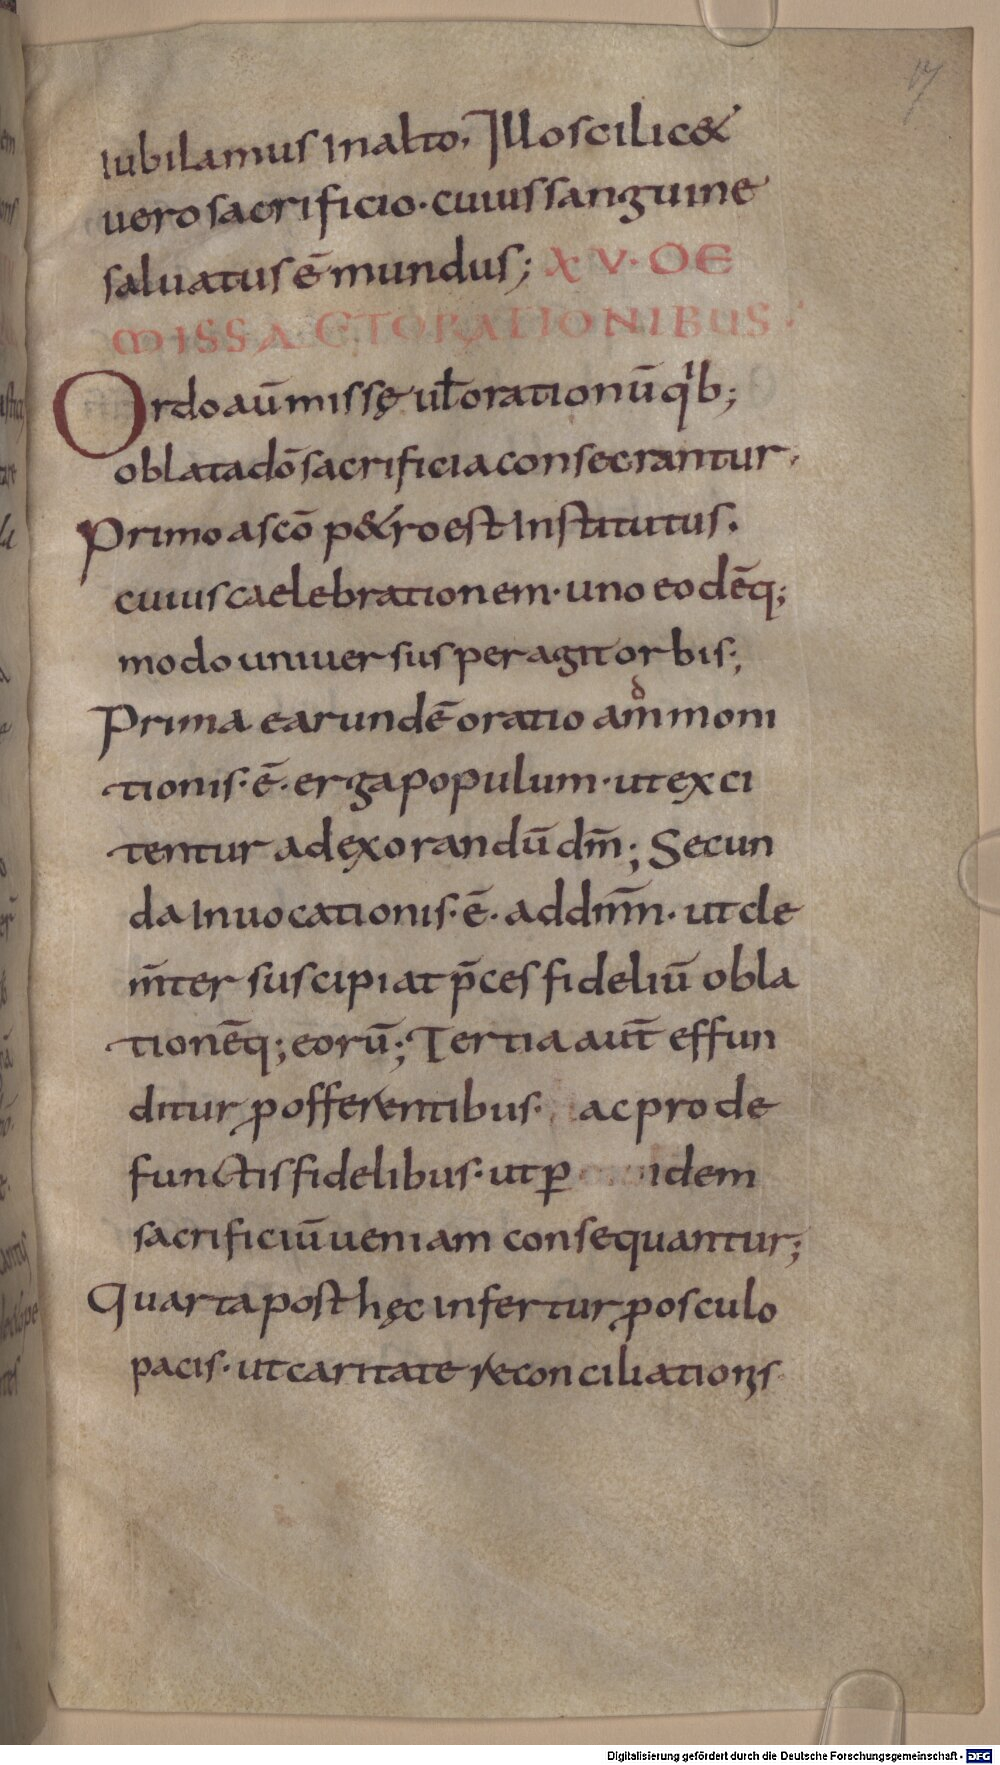 17
iubilamus in alto, Illo scilic&
uero sacrificio· cuius sanguine
saluatus ē mundus; XV· DE
MISSA ET ORATIONIBUS·
Ordo aū missę uƚ orationū qⁱb;
oblata dō sacrificia consecrantur·
Primo a scō p&ro est institutus·
cuius caelebrationem· uno eodēq;
modo uniuersus peragit orbis;
Prima earundē oratio am̄moni
tionis· ē· erga populum· ut exci
tentur ad exorandū dm̄; Secun
da inuocationis· ē· ad dm̄m· ut cle
m̄ter suscipiat p̄ces fideliū obla
tionēq; eorū; Tertia aut̄ effun
ditur ꝓ offerentibus· ac pro de
functis fidelibus· ut ꝑ idem
sacrificiū ueniam consequantur;
Quarta post hęc infertur ꝓ osculo
pacis· ut caritate reconciliationis
Digitalisierung gefördert durch die Deutsche Forschungsgemeinschaft · DFG